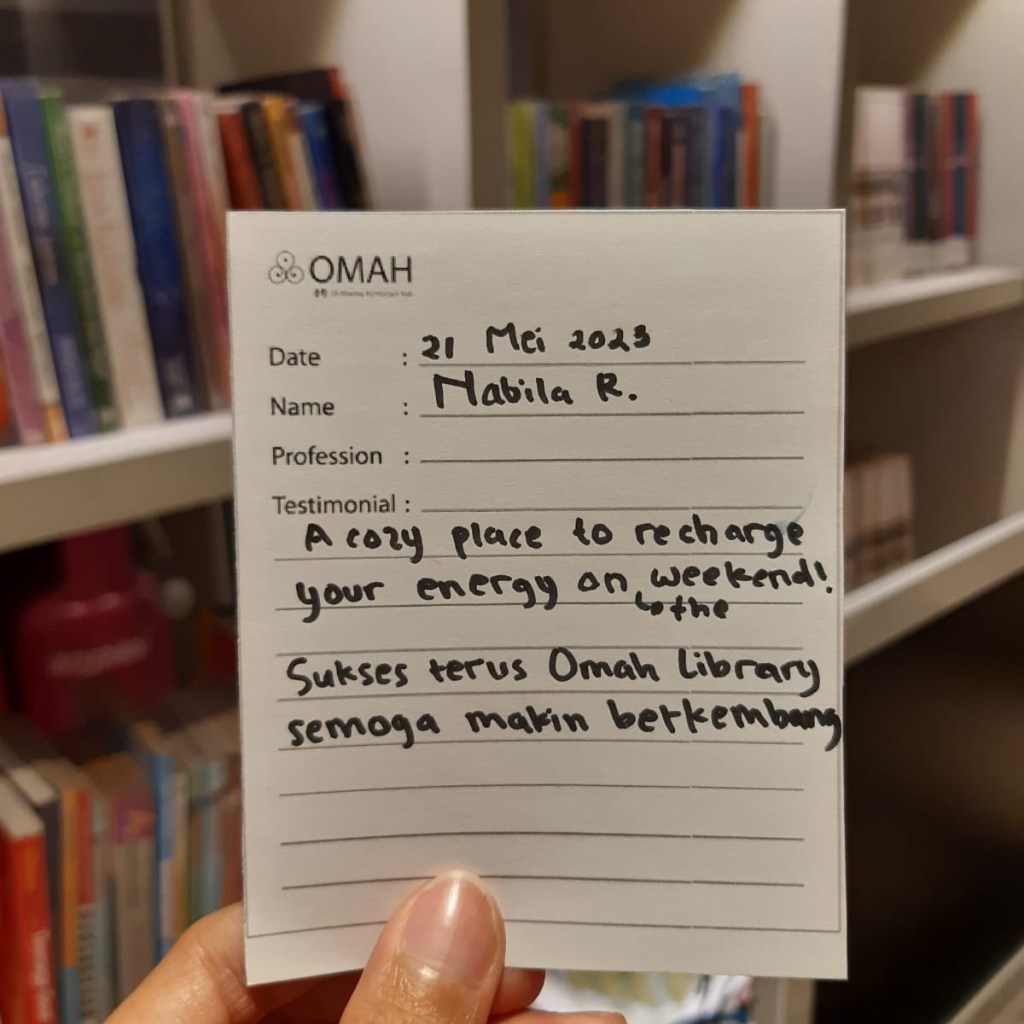 OMAH
Date : 21 Mei 2023
Name : Nabila R.
Profession :
Testimonial :
A cozy place to recharge
your energy on weekend!
↳ the
Sukses terus Omah Library
semoga makin berkembang